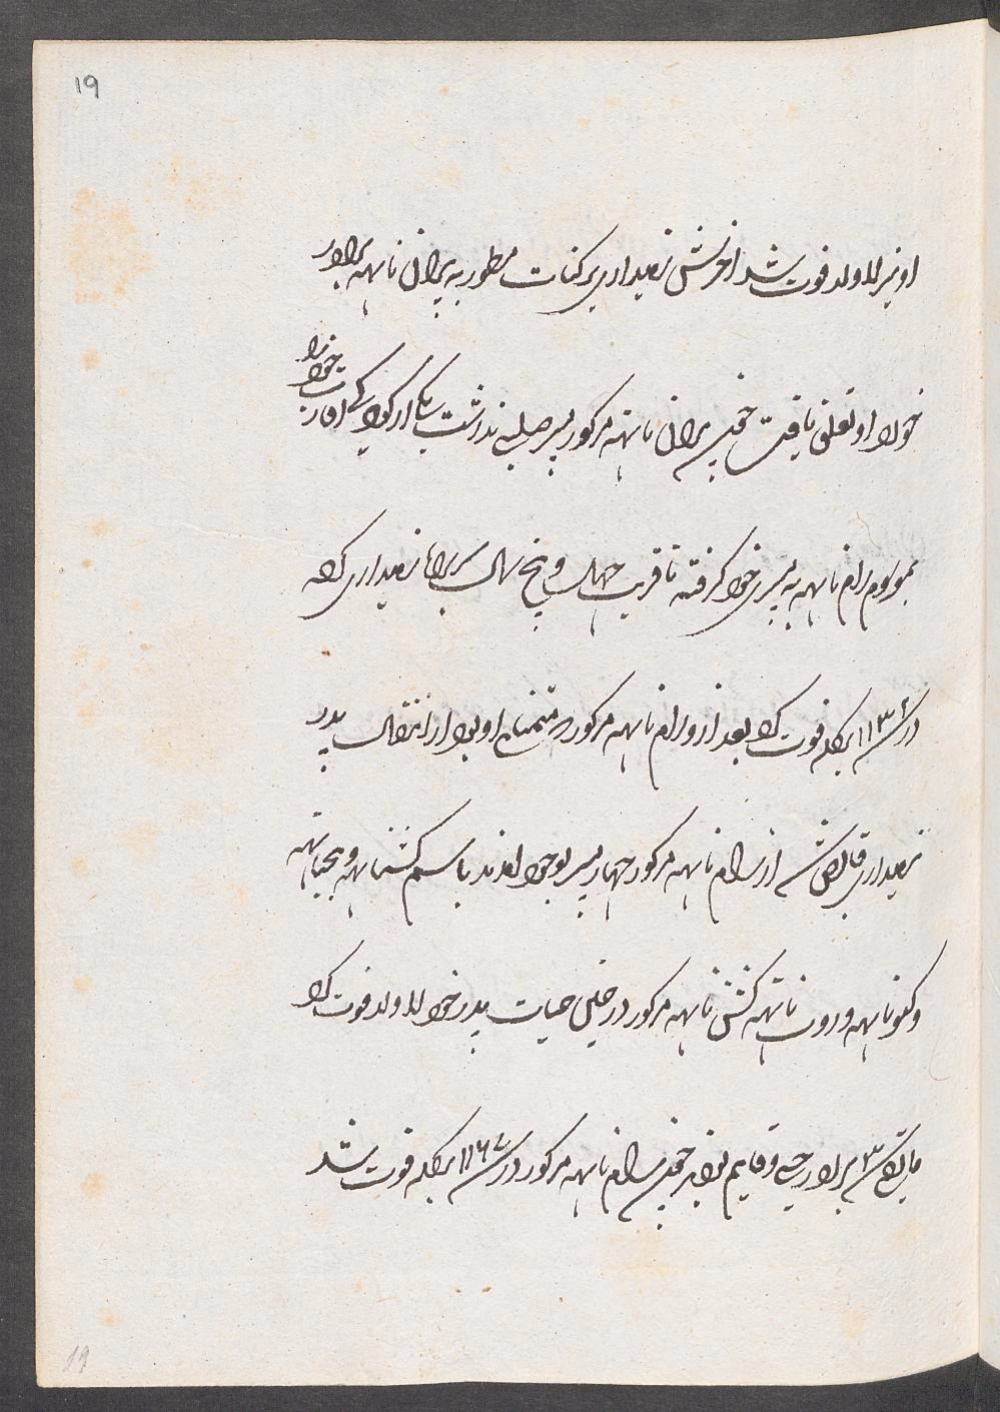 19
او نیز لا ولد فوت شد آخرش زمیداری پرکنات مسطور به پران ناتهه برادر
خورد او تعلق یافت چون پران ناتهه مذکور پسر صلبی نداشت یکی از اقارب خود را
بموسوم رام ناتهه به پسری خود گرفته تا قریب چهل و پنج سال سربراه زمیداری کرده
در سنه ۱۱۳۲ بنکله فوت کرد بعد ازو رام ناتهه مذکور که متبنای او بود از انتقال پدر
زمیداری قابض شد از رام ناتهه مذکور چهار پسر بوجود آمدند باسم کشن ناتهه و بیجناتهه
و ناتهه و ناتهه کشن ناتهه مذکور در حین حیات پدر خود لا ولد فوت کرد
مابقی ۳ برادر حی و قایم بودند چون رام ناتهه مذکور در سنه ۱۱۶۷ بنکله فوت شد
19